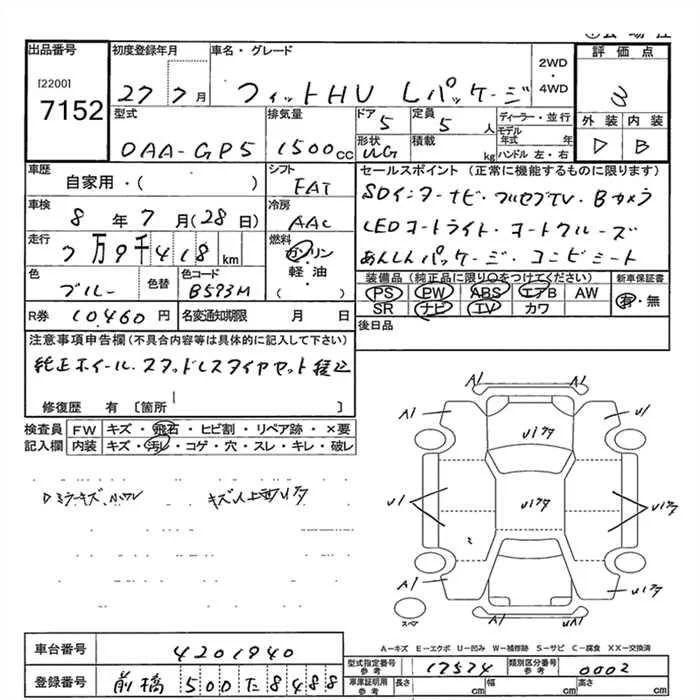 出品番号
[2200]
7152
初度登録年月
27 7月
車名・グレード
フィットHV Lパッケージ
2WD
・
4WD
評価点
3
型式
DAA-GP5
排気量
1500cc
ドア
5
定員
5人
形状
WG
積載
kg
ディーラー・並行
モデル年式 年
ハンドル 左・右
外装 内装
D B
車歴
自家用・( )
シフト
FAT
セールスポイント (正常に機能するものに限ります)
SDインターナビ・フルセグTV・Bカメラ
LEDオートライト・オートクルーズ
あんしんパッケージ・コンビシート
車検
8年7月(28日)
冷房
AAC
走行
7万9千418km
燃料
ガソリン
・
軽・油
( )
色
ブルー
色替
色コード
B593M
装備品(純正品に限り○をつけてください)
PS PW ABS エアB AW
SR ナビ TV カワ
新車保証書
有・無
R券
10,460円
名変通知期限 月 日
後日品
注意事項申告欄(不具合内容等は具体的に記入して下さい)
純正ホイール・スタッドレスタイヤセット積込
修復歴 有〔箇所 〕
検査員記入欄
FW キズ・飛石・ヒビ割・リペア跡・×要
内装 キズ・汚レ・コゲ・穴・スレ・キレ・破レ
A1
U1
A1
A1
スペア
A-キズ E-エクボ U-凹み W-補修跡 S-サビ C-腐食 XX-交換済
車台番号
4201940
登録番号
前橋 500 た 8488
型式指定番号
参考
17574
類別区分番号
参考
0002
車庫証明用
参考
長さ cm
幅 cm
高さ cm